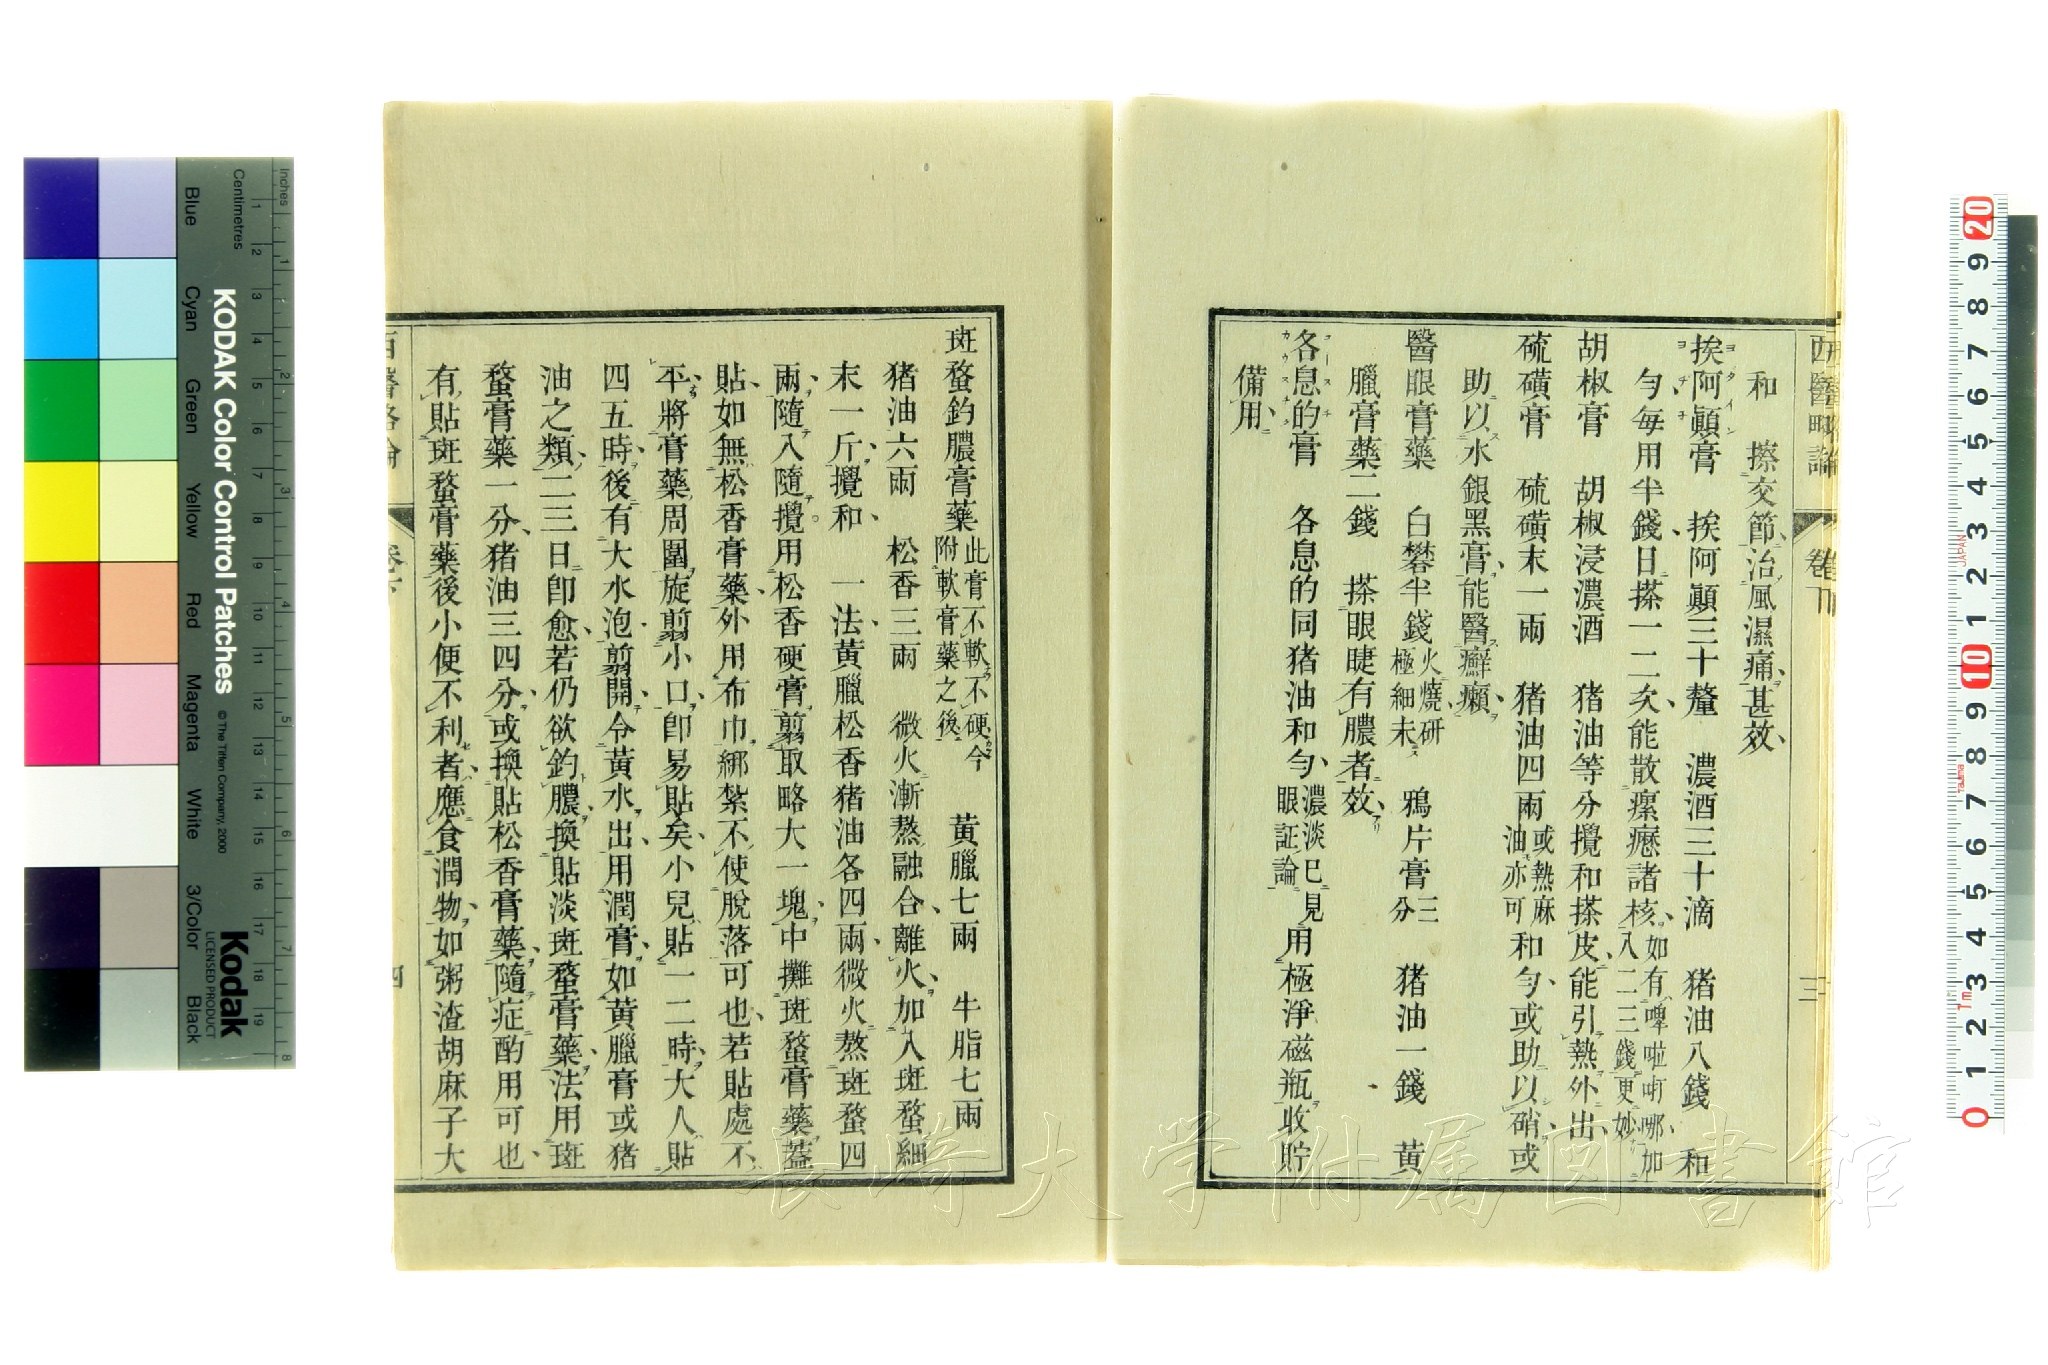 西醫略論 卷下 三
和 擦交節治風濕痛甚效
挨阿顚膏 挨阿顚三十釐 濃酒三十滴 猪油八錢 和
勻每用半錢日搽一二次能散瘰癧諸核如有嗶啦㖠哪加入二三錢更妙
胡椒膏 胡椒浸濃酒 猪油等分攪和搽皮能引熱外出
硫磺膏 硫磺末一兩 猪油四兩或熱麻油亦可和勻或助以硝或
助以水銀黑膏能醫癬癩
醫眼膏藥 白礬半錢火燒研極細末 鴉片膏三分 猪油一錢 黃
臘膏藥二錢 搽眼睫有膿者效
各息的膏 各息的同猪油和勻濃淡已見眼証論用極淨磁瓶收貯
備用
斑蝥釣膿膏藥此膏不軟不硬今附軟膏藥之後 黃臘七兩 牛脂七兩
猪油六兩 松香三兩 微火漸熬融合離火加入斑蝥細
末一斤攪和 一法黃臘松香猪油各四兩微火熬斑蝥四
兩隨入隨攪用松香硬膏剪取略大一塊中攤斑蝥膏藥蓋
貼如無松香膏藥外用布巾綁紮不使脫落可也若貼處不
平將膏藥周圍旋剪小口卽易貼矣小兒貼一二時大人貼
四五時後有大水泡剪開令黃水出用潤膏如黃臘膏或猪
油之類二三日卽愈若仍欲釣膿換貼淡斑蝥膏藥法用斑
蝥膏藥一分猪油三四分或換貼松香膏藥隨症酌用可也
有貼斑蝥膏藥後小便不利者應食潤物如粥渣胡麻子大
西醫略論 卷下 四
KODAK Color Control Patches
© The Tiffen Company, 2000
Kodak
LICENSED PRODUCT
Inches
Centimetres
Blue Cyan Green Yellow Red Magenta White 3/Color Black
長崎大学附属図書館